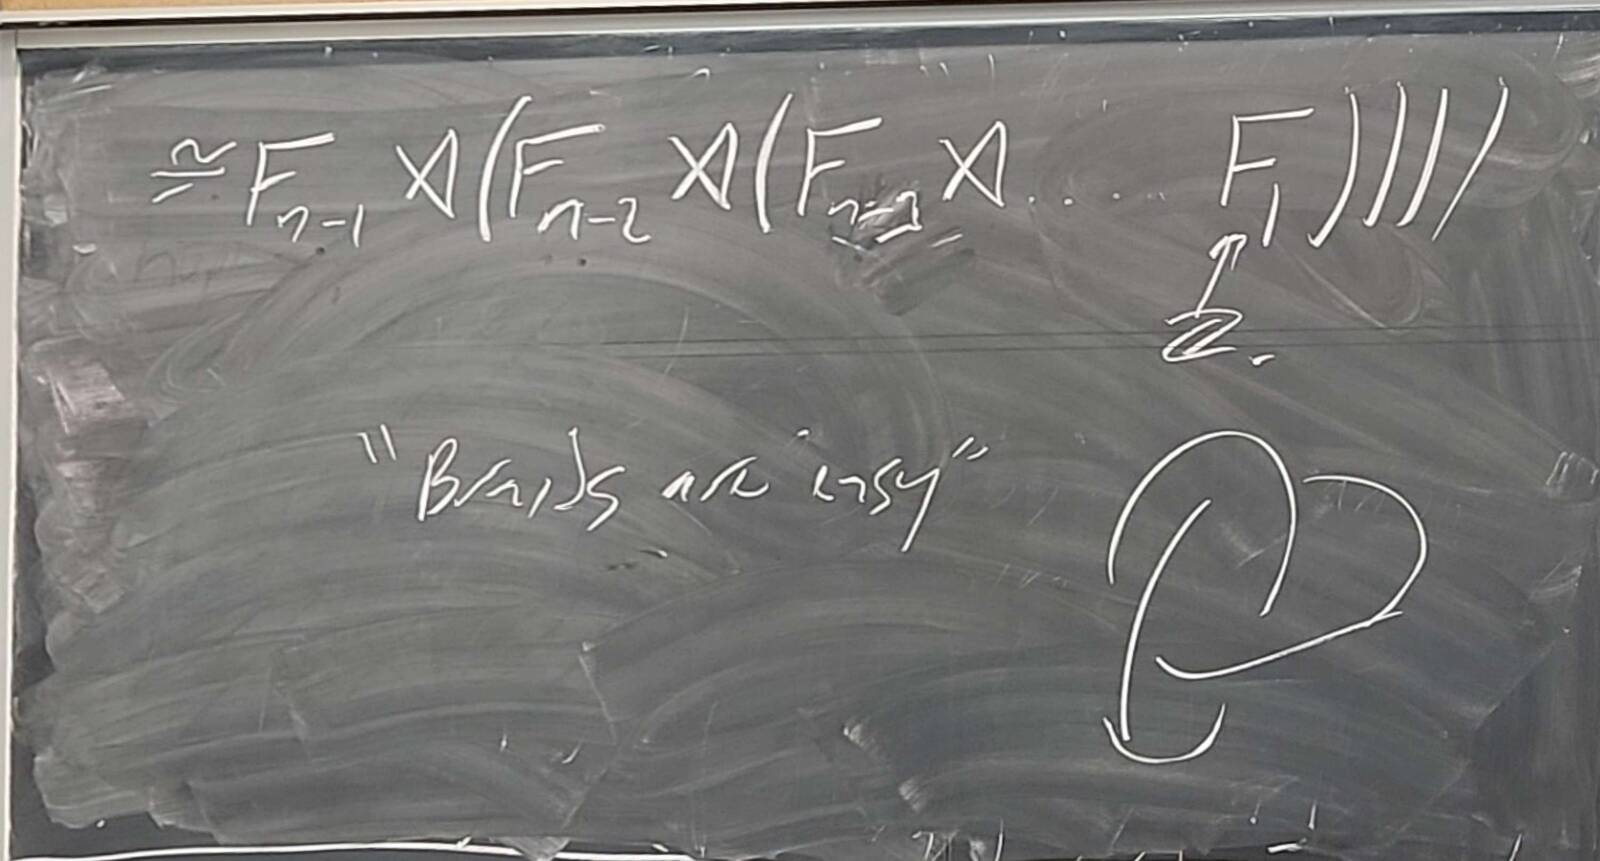 ≅ F_{n-1} ⋊ (F_{n-2} ⋊ (F_{n-3} ⋊ .... F_1))))
ℤ.
"Braids are easy"